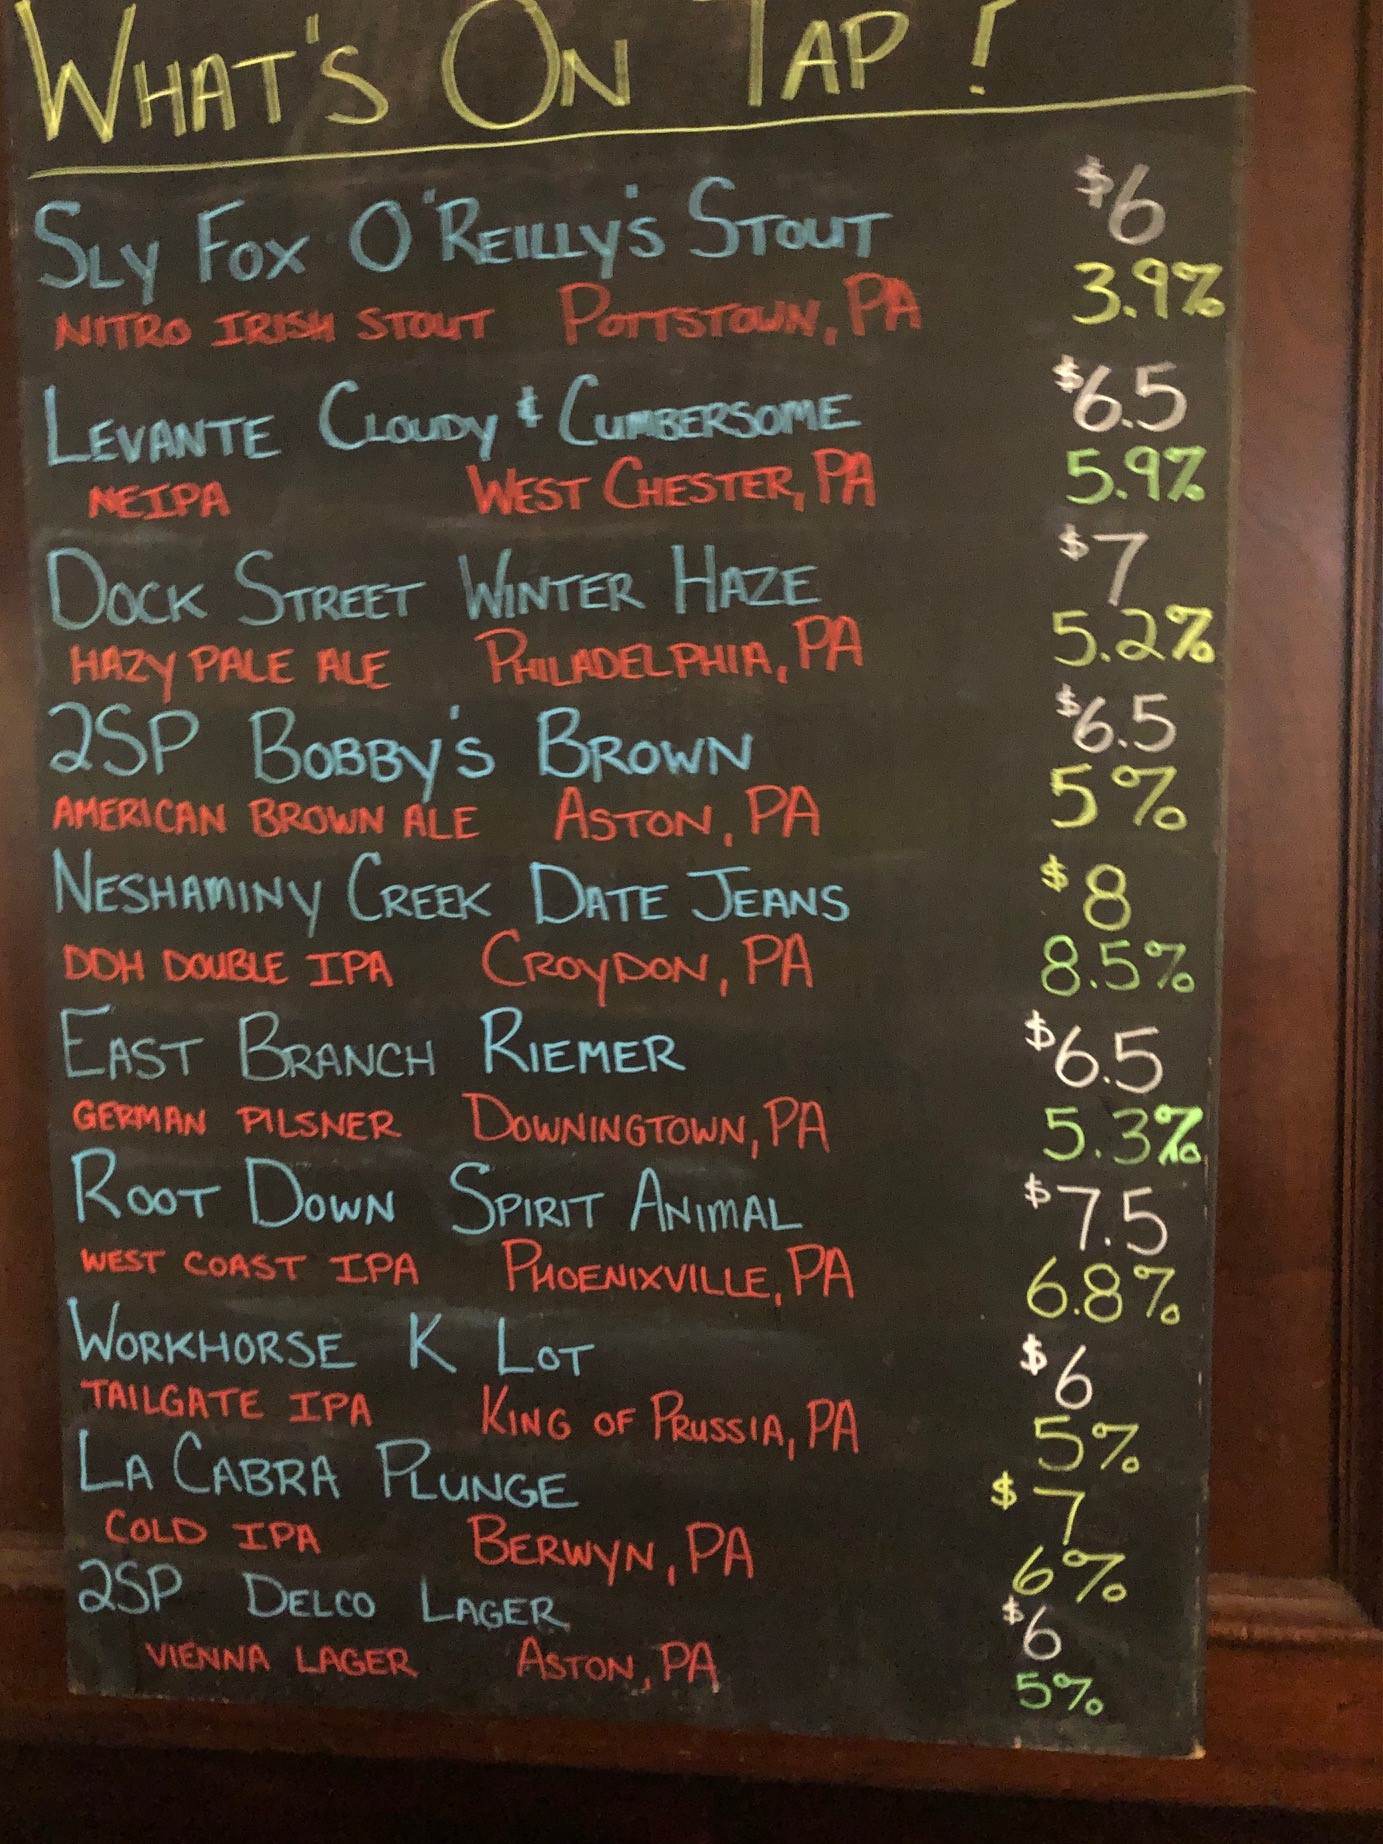 WHAT'S ON TAP!
SLY FOX O'REILLY'S STOUT $6
NITRO IRISH STOUT POTTSTOWN, PA 3.9%
LEVANTE CLOUDY & CUMBERSOME $6.5
NEIPA WEST CHESTER, PA 5.9%
DOCK STREET WINTER HAZE $7
HAZY PALE ALE PHILADELPHIA, PA 5.2%
2SP BOBBY'S BROWN $6.5
AMERICAN BROWN ALE ASTON, PA 5%
NESHAMINY CREEK DATE JEANS $8
DDH DOUBLE IPA CROYDON, PA 8.5%
EAST BRANCH RIEMER $6.5
GERMAN PILSNER DOWNINGTOWN, PA 5.3%
ROOT DOWN SPIRIT ANIMAL $7.5
WEST COAST IPA PHOENIXVILLE, PA 6.8%
WORKHORSE K LOT $6
TAILGATE IPA KING OF PRUSSIA, PA 5%
LA CABRA PLUNGE $7
COLD IPA BERWYN, PA 6%
2SP DELCO LAGER $6
VIENNA LAGER ASTON, PA 5%